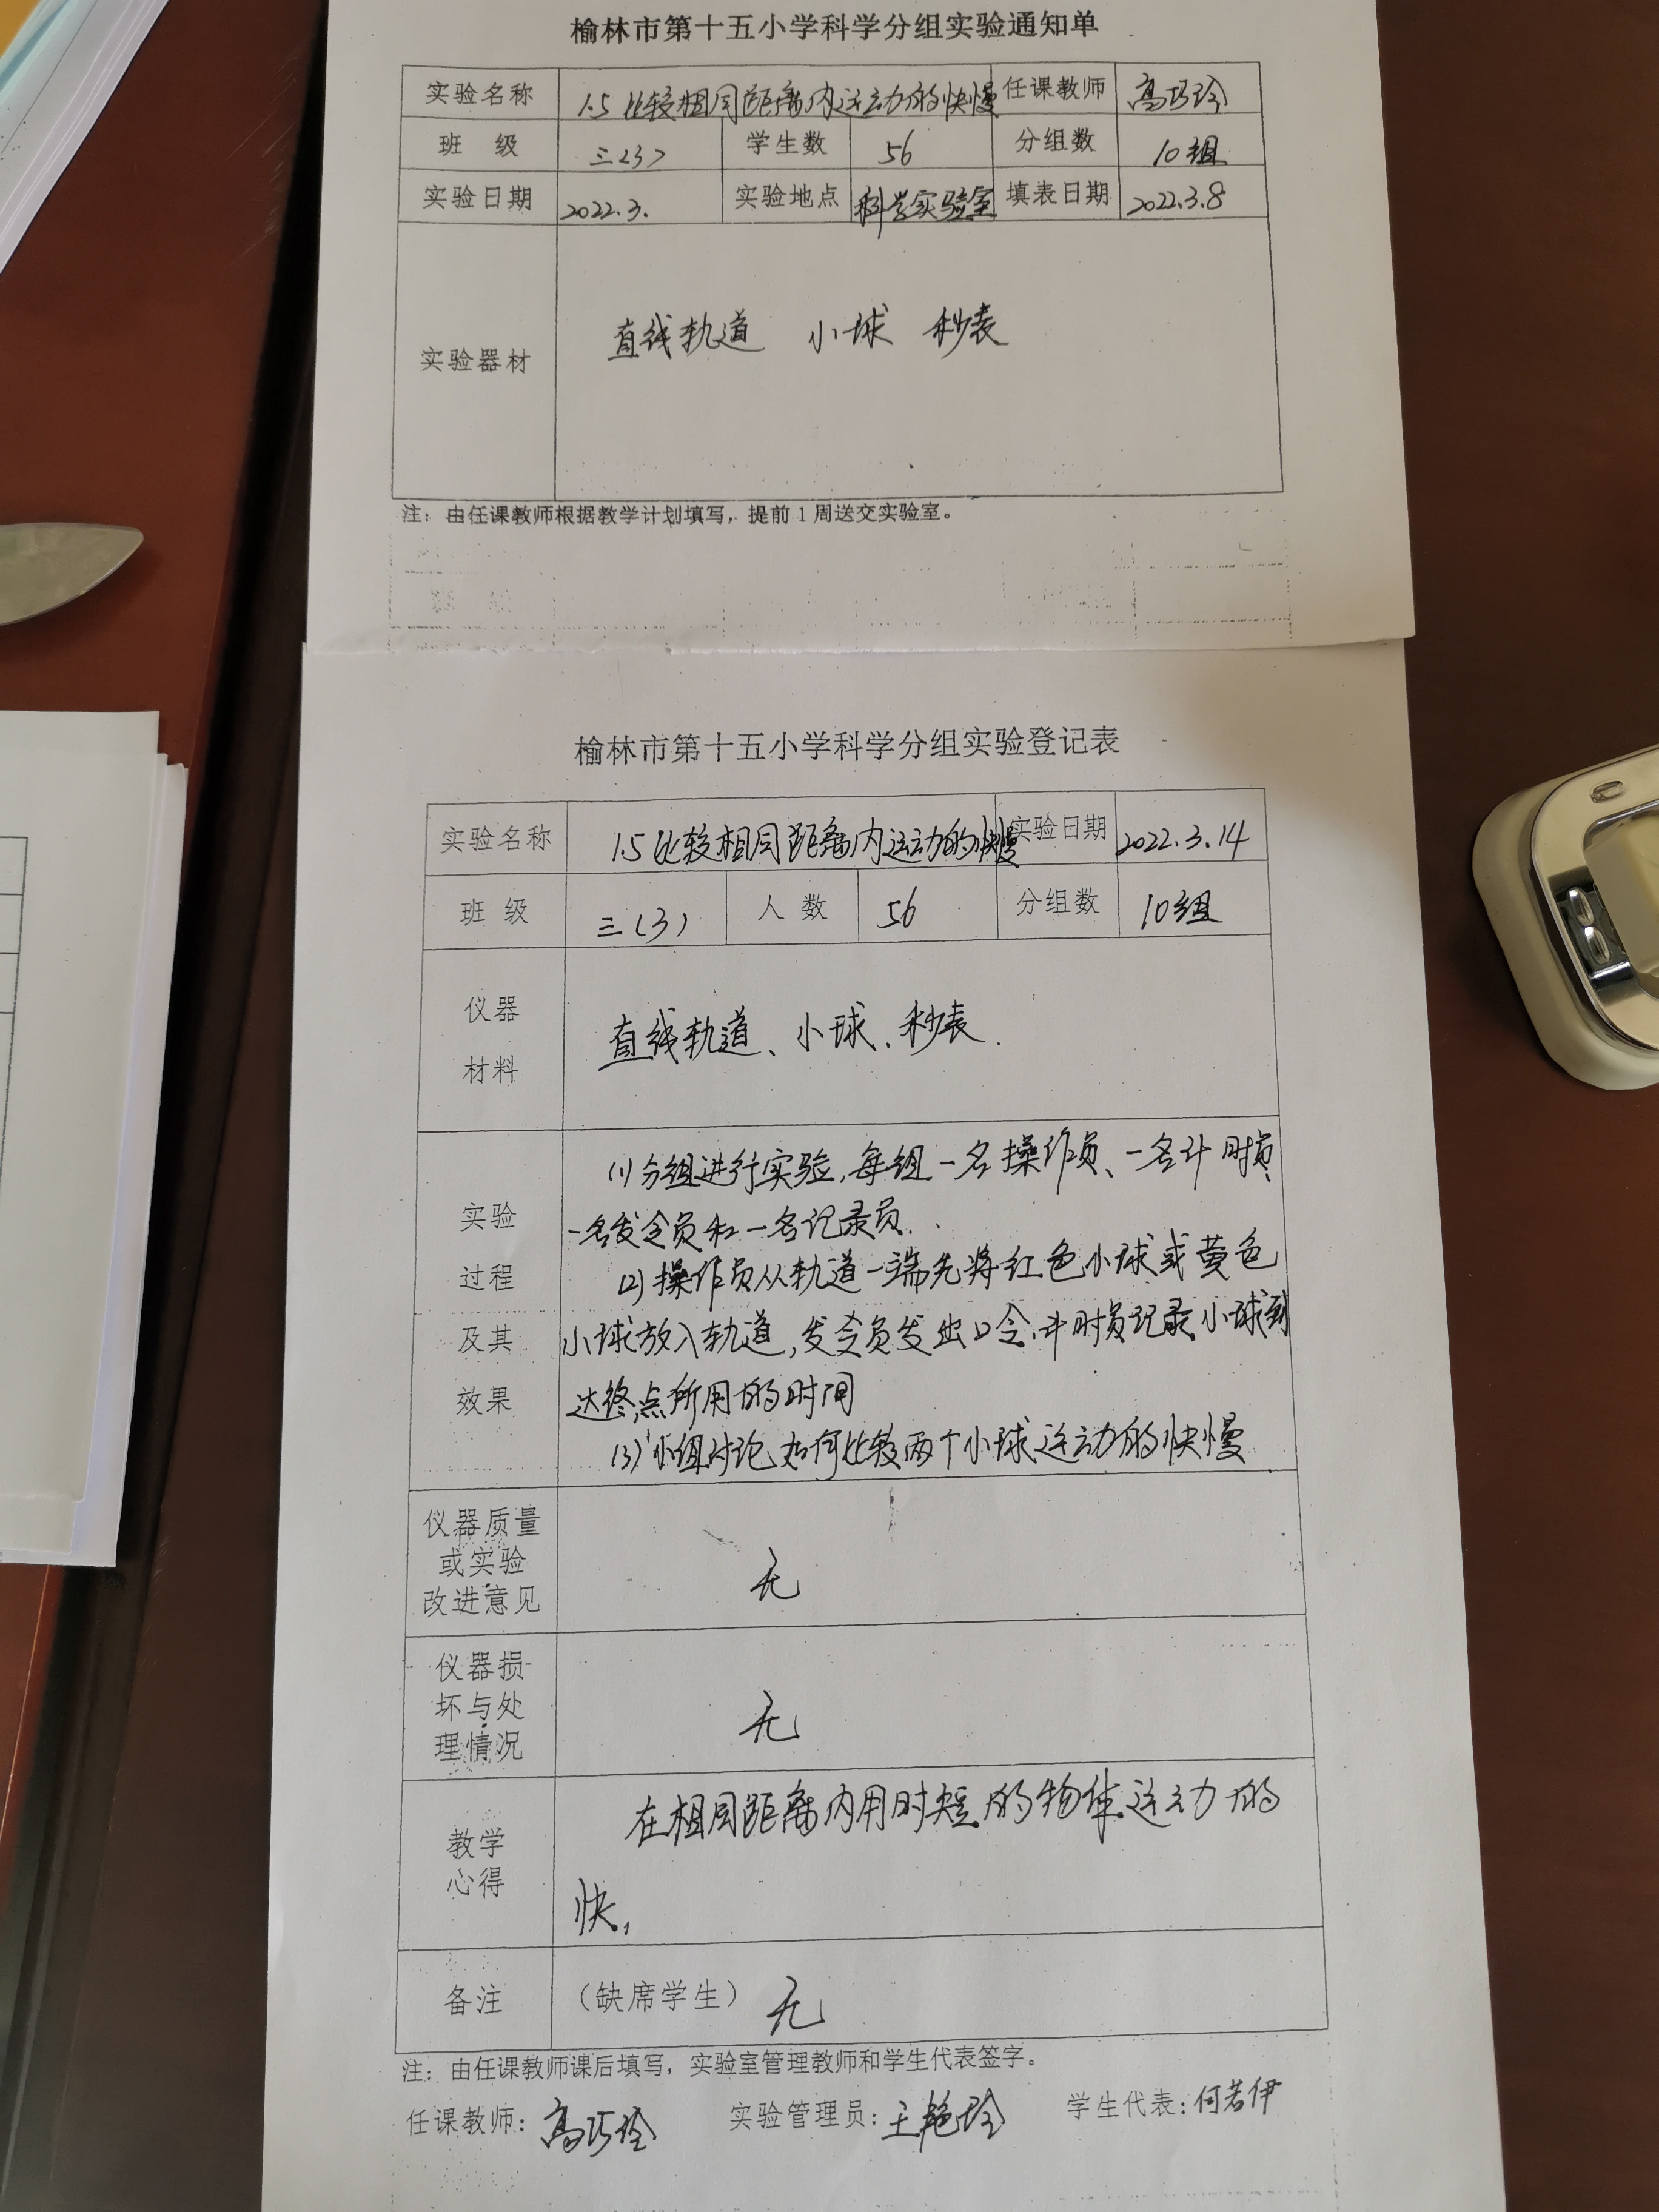 榆林市第十五小学科学分组实验通知单
实验名称 1.5 比较相同距离内运动的快慢 任课教师 高巧玲
班 级 三<3> 学生数 56 分组数 10组
实验日期 2022.3. 实验地点 科学实验室 填表日期 2022.3.8
实验器材 直线轨道 小球 秒表
注：由任课教师根据教学计划填写，提前1周送交实验室。
榆林市第十五小学科学分组实验登记表
实验名称 1.5 比较相同距离内运动的快慢 实验日期 2022.3.14
班 级 三(3) 人 数 56 分组数 10组
仪器
材料
直线轨道、小球、秒表.
实验
过程
及其
效果
(1)分组进行实验,每组一名操作员、一名计时员
一名发令员和一名记录员.
(2)操作员从轨道一端先将红色小球或黄色
小球放入轨道,发令员发出口令,计时员记录小球到
达终点所用的时间
(3)小组讨论,如何比较两个小球运动的快慢
仪器质量
或实验
改进意见
无
仪器损
坏与处
理情况
无
教学
心得
在相同距离内用时短的物体运动的
快,
备注 （缺席学生） 无
注：由任课教师课后填写，实验室管理教师和学生代表签字。
任课教师：高巧玲 实验管理员：王艳玲 学生代表：何若伊